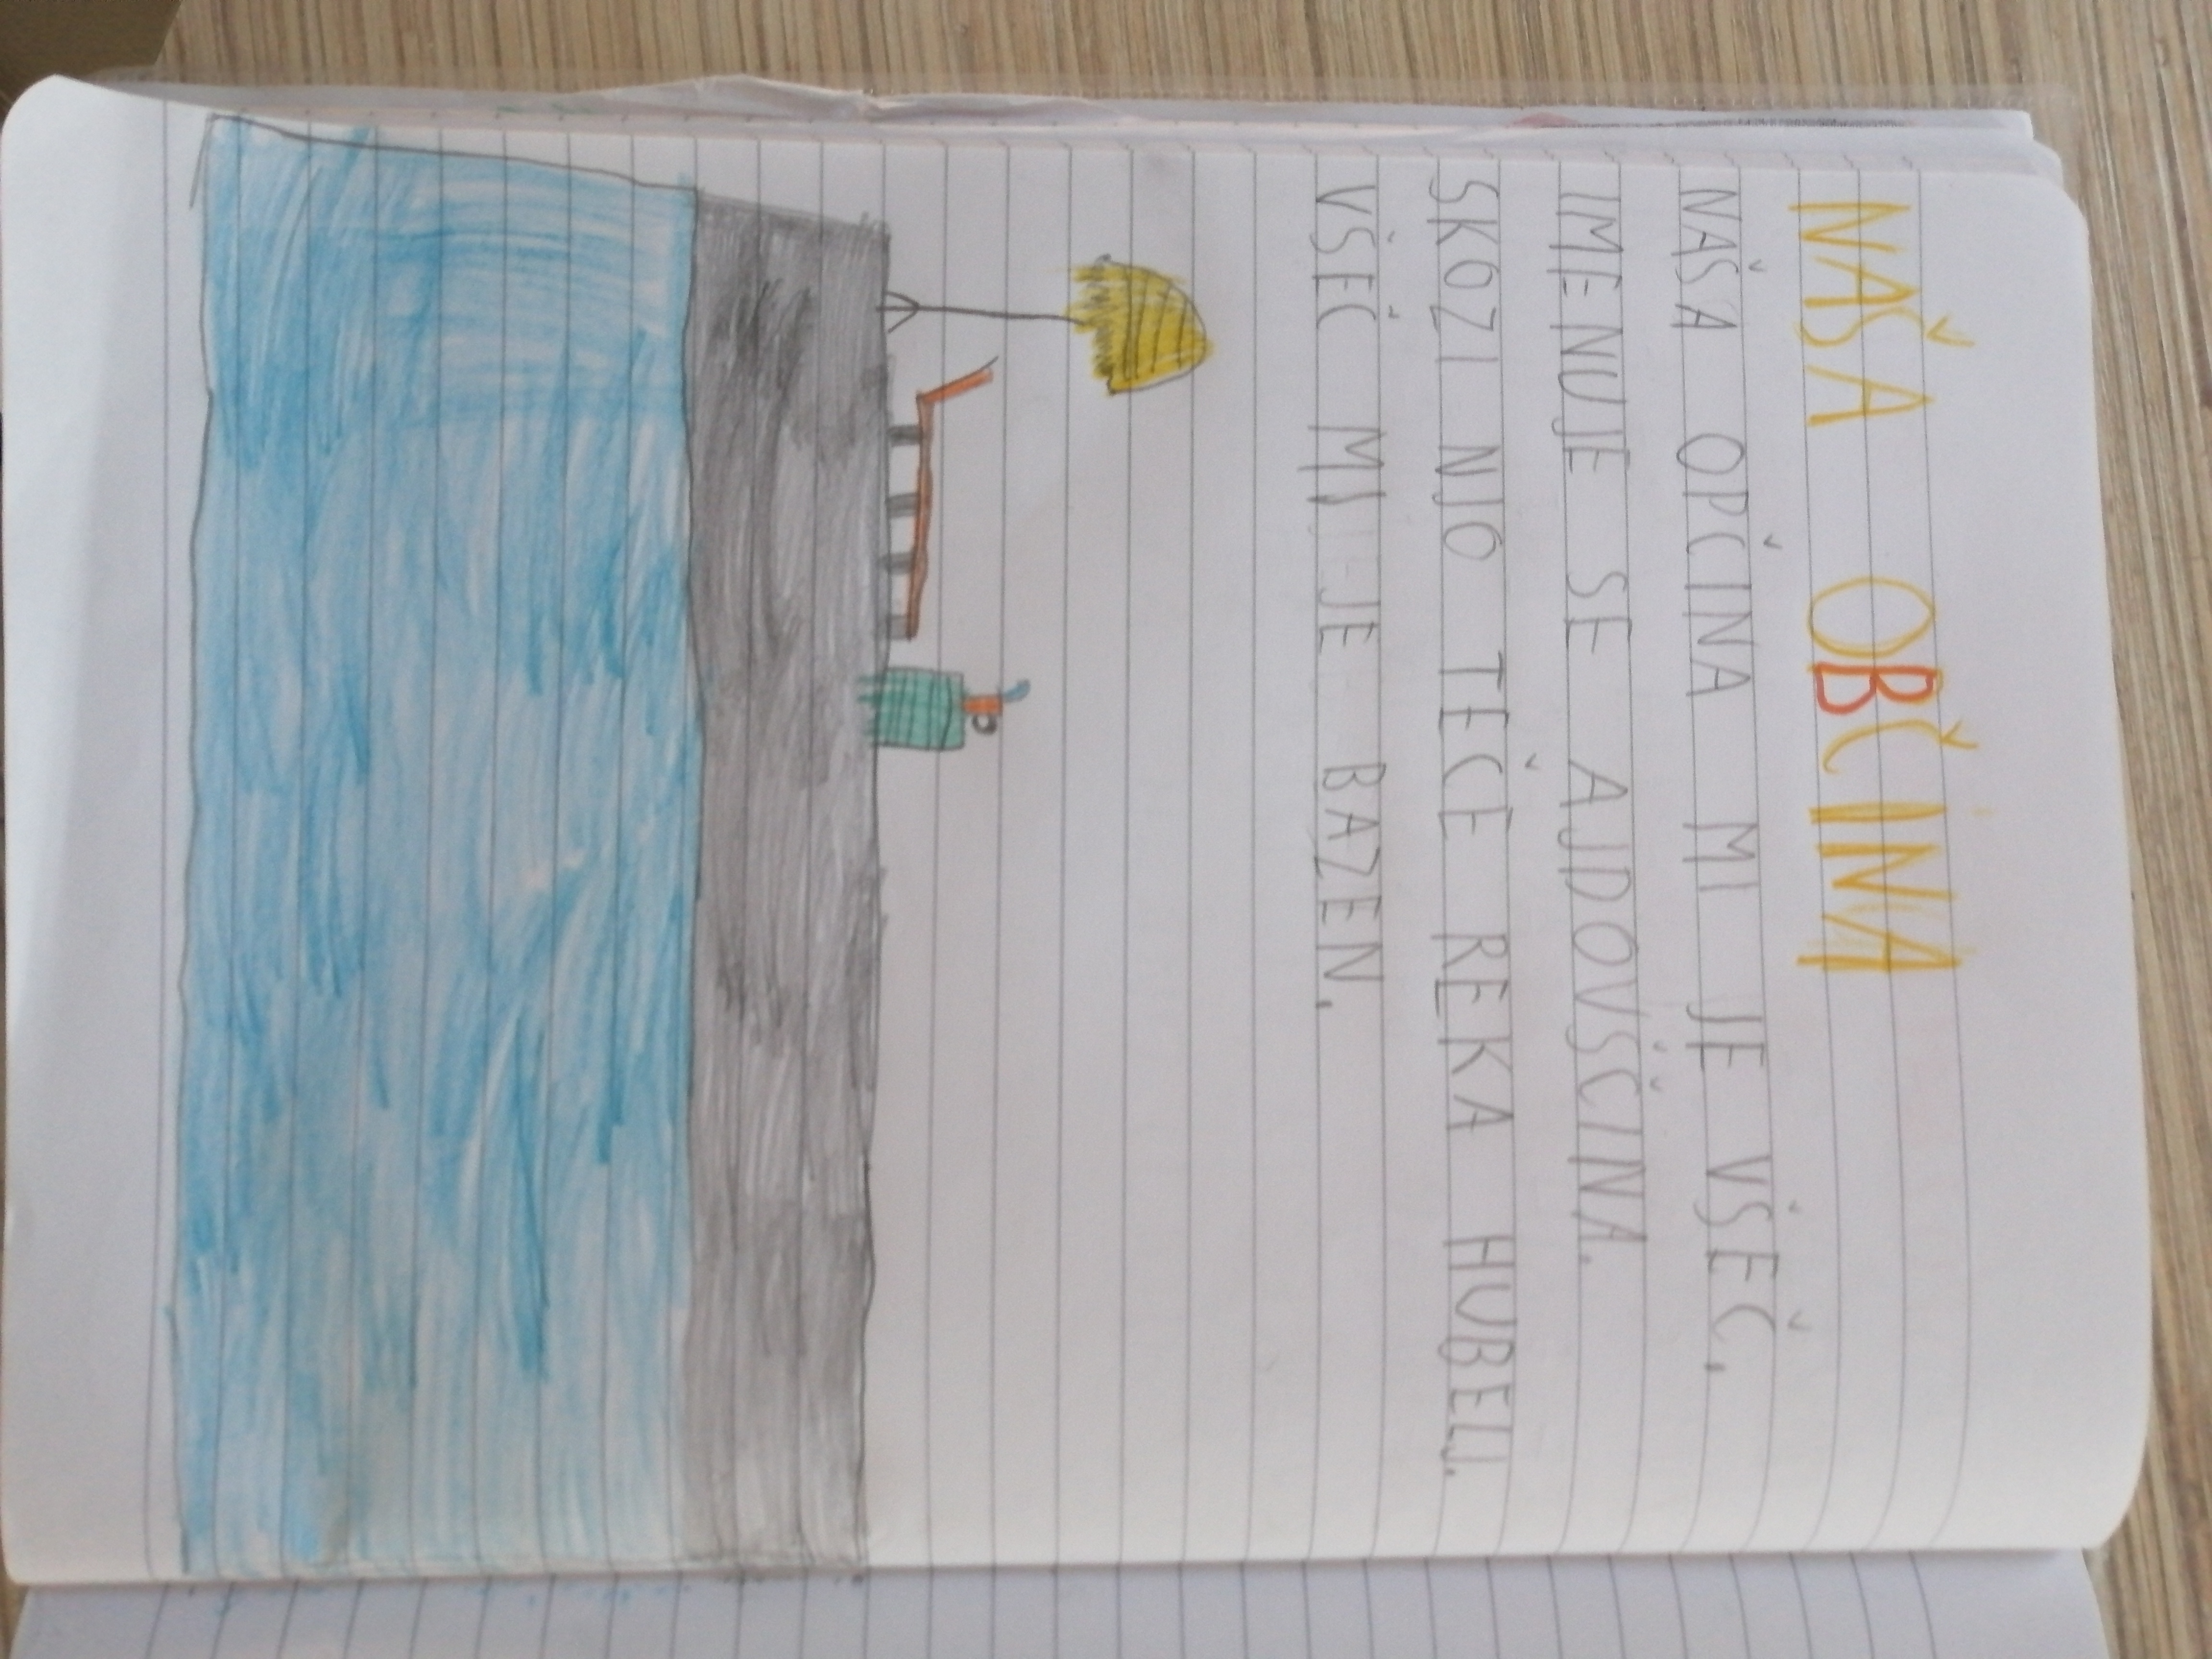 NAŠA OBČINA
NAŠA OPČINA MI JE VŠEČ.
IMENUJE SE AJDOVŠČINA.
SKOZI NJO TEČE REKA HUBELJ.
VŠEČ MI JE BAZEN.